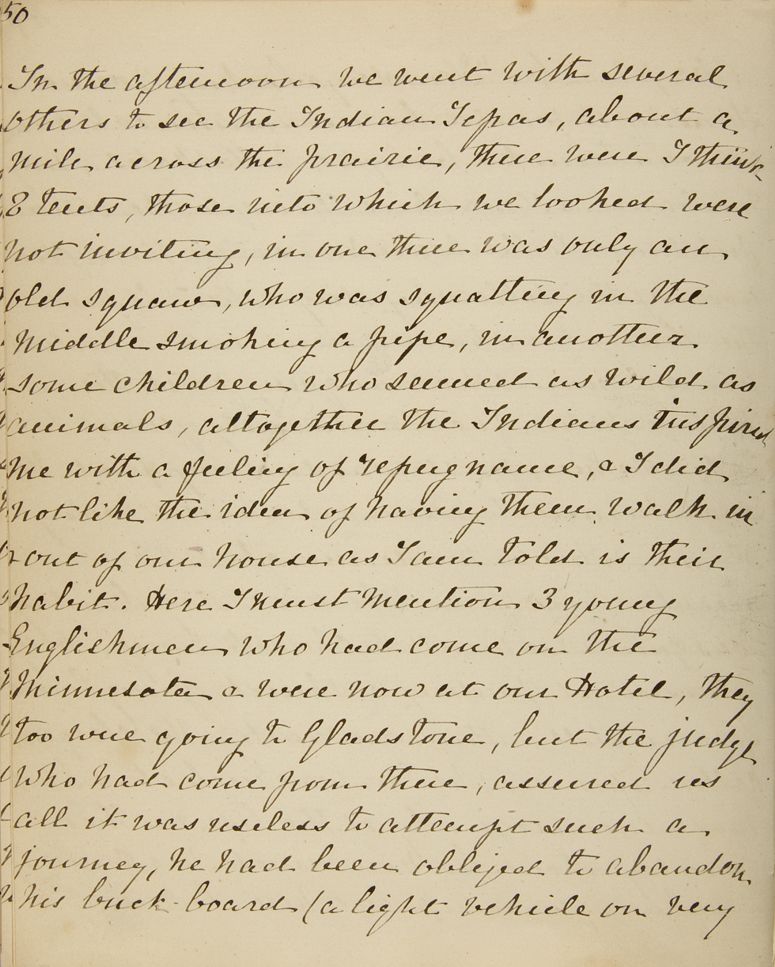 50
In the afternoon we went with several
others to see the Indian Tepas, about a
mile across the prairie, there were I think
8 tents, those into which we looked were
not inviting, in one there was only an
old squaw, who was squatting in the
middle smoking a pipe, in another
some children who seemed as wild as
animals, altogether the Indians inspired
me with a feeling of repugnance, & I did
not like the idea of having them walk in
& out of our house as I am told is their
habit. Here I must mention 3 young
Englishmen who had come on the
Minnesota & were now at our Hotel, they
too were going to Gladstone, but the judge
who had come from there, assured us
all it was useless to attempt such a
journey, he had been obliged to abandon
his buck-board (a light vehicle on very